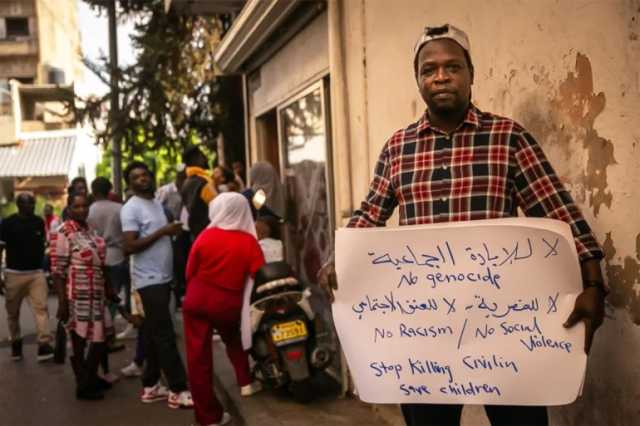 لا للإبادة الجماعية
No genocide
لا للعنصرية - لا للعنف الاجتماعي
No Racism / No Social
Violence
Stop Killing Civilin
Save children